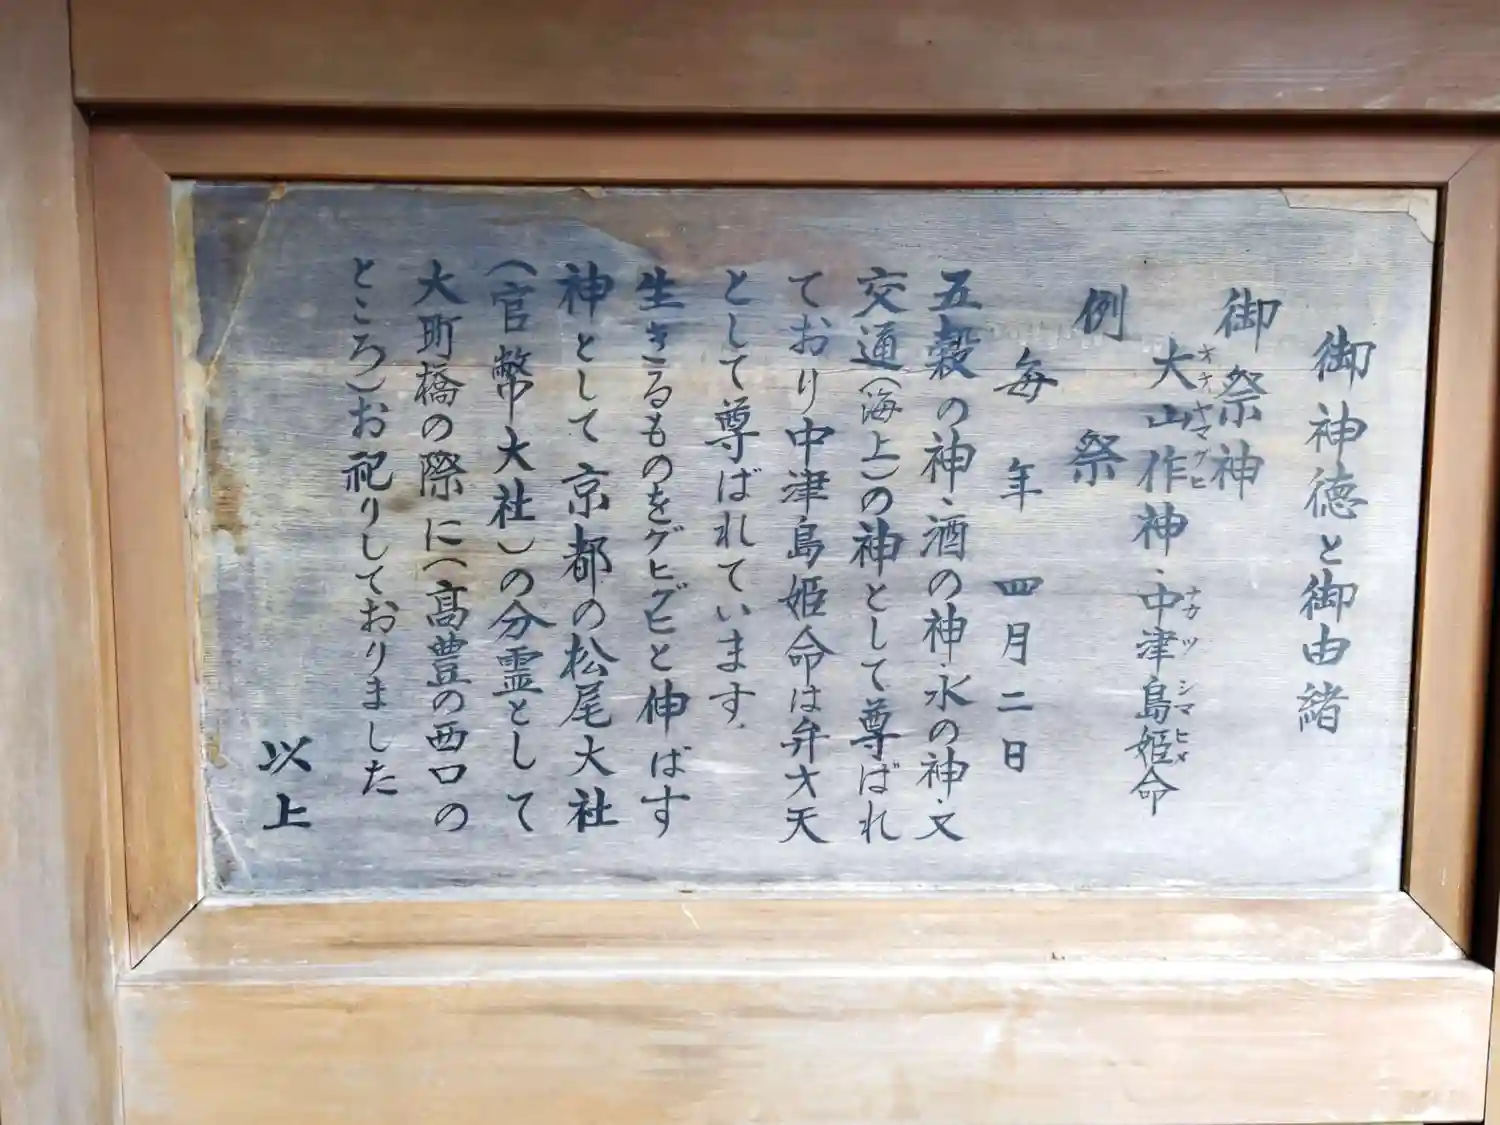 御神徳と御由緒
御祭神
大山作神・中津島姫命
オオヤマグヒ ナカツシマヒメ
例祭
毎年四月二日
五穀の神・酒の神・水の神・文
交通(海上)の神として尊ばれ
ており中津島姫命は弁才天
として尊ばれています.
生きるものをグヒグヒと伸ばす
神として京都の松尾大社
(官幣大社)の分霊として
大町橋の際に(高豊の西口の
ところ)お祀りしておりました
以上